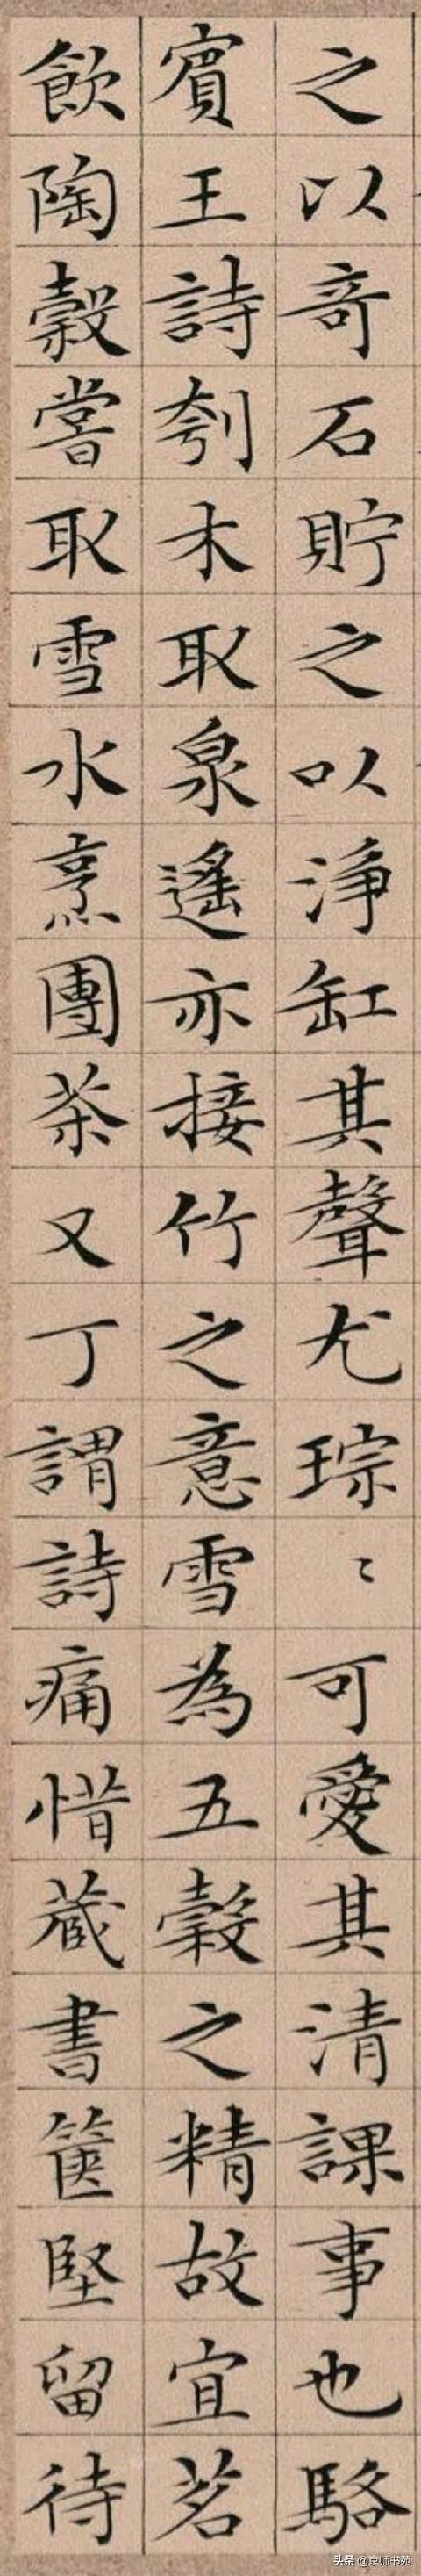 之以奇石貯之以淨缸其聲尤琮〻可愛其清課事也駱
賓王詩刳木取泉遙亦接竹之意雪為五穀之精故宜茗
飲陶穀嘗取雪水烹團茶又丁謂詩痛惜蔵書篋堅留待
头条 @京师书苑